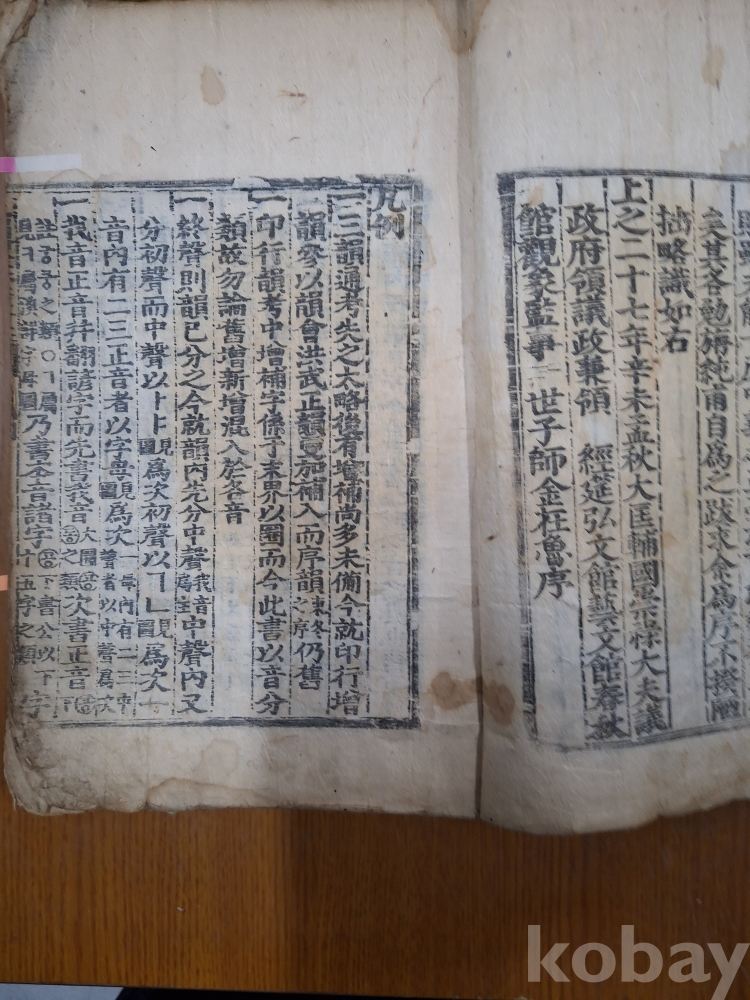 矣其各勉旃純甫自爲之跋求余爲序不揆陋
拙略識如右
上之二十七年辛未孟秋大匡輔國崇祿大夫議
政府領議政兼領 經筵弘文館藝文館春秋
館觀象監事 世子師金在魯序
凡例
一三韻通考失之太略後有增補尚多未備今就印行增
韻參以韻會洪武正韻更加補入而序韻東冬之序仍舊
一印行韻考中增補字係于末界以圈而今此書以音分
類故勿論舊增新增混入於各音
一終聲則韻已分之今就韻內先分中聲我音爲主中聲內又
分初聲而中聲以ㅏㅑ見圖爲次初聲以ㄱㄴ見圖爲次
音內有二三正音者以字母見圖爲次一母內有二三中聲者以中聲爲次
一我音正音幷翻諺字而先書我音大圈之類次書正音
乃書本音諸字
kobay